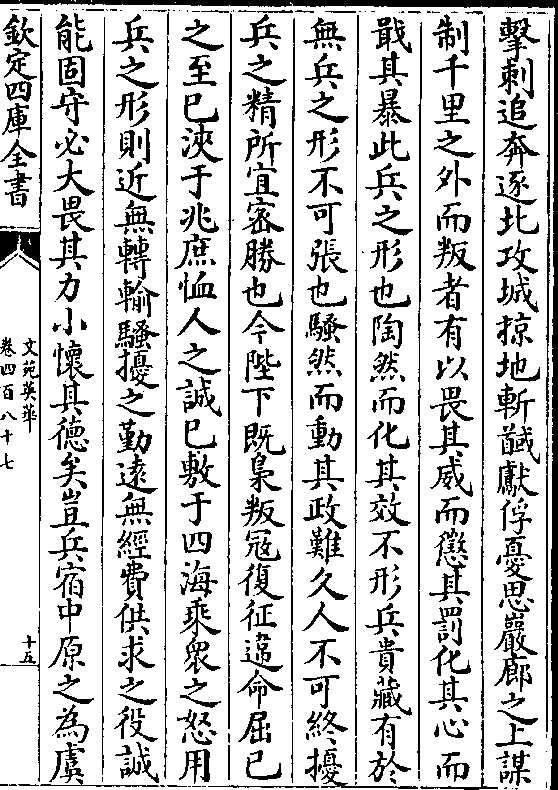 擊刺追奔逐北攻城掠地斬馘獻俘憂思巖廊之上謀
制千里之外而叛者有以畏其威而懲其罰化其心而
戢其暴此兵之形也陶然而化其效不形兵貴藏有於
無兵之形不可張也騷然而動其政難久人不可終擾
兵之精所宜密勝也今陛下既梟叛冦復征違命屈已
之至已浹于兆庶恤人之誠已敷于四海乘衆之怒用
兵之形則近無轉輸騷擾之勤遠無經費供求之役誠
能固守必大畏其力小懷其德矣豈兵宿中原之為虞
欽定四庫全書
文苑英華
卷四百八十七
十五